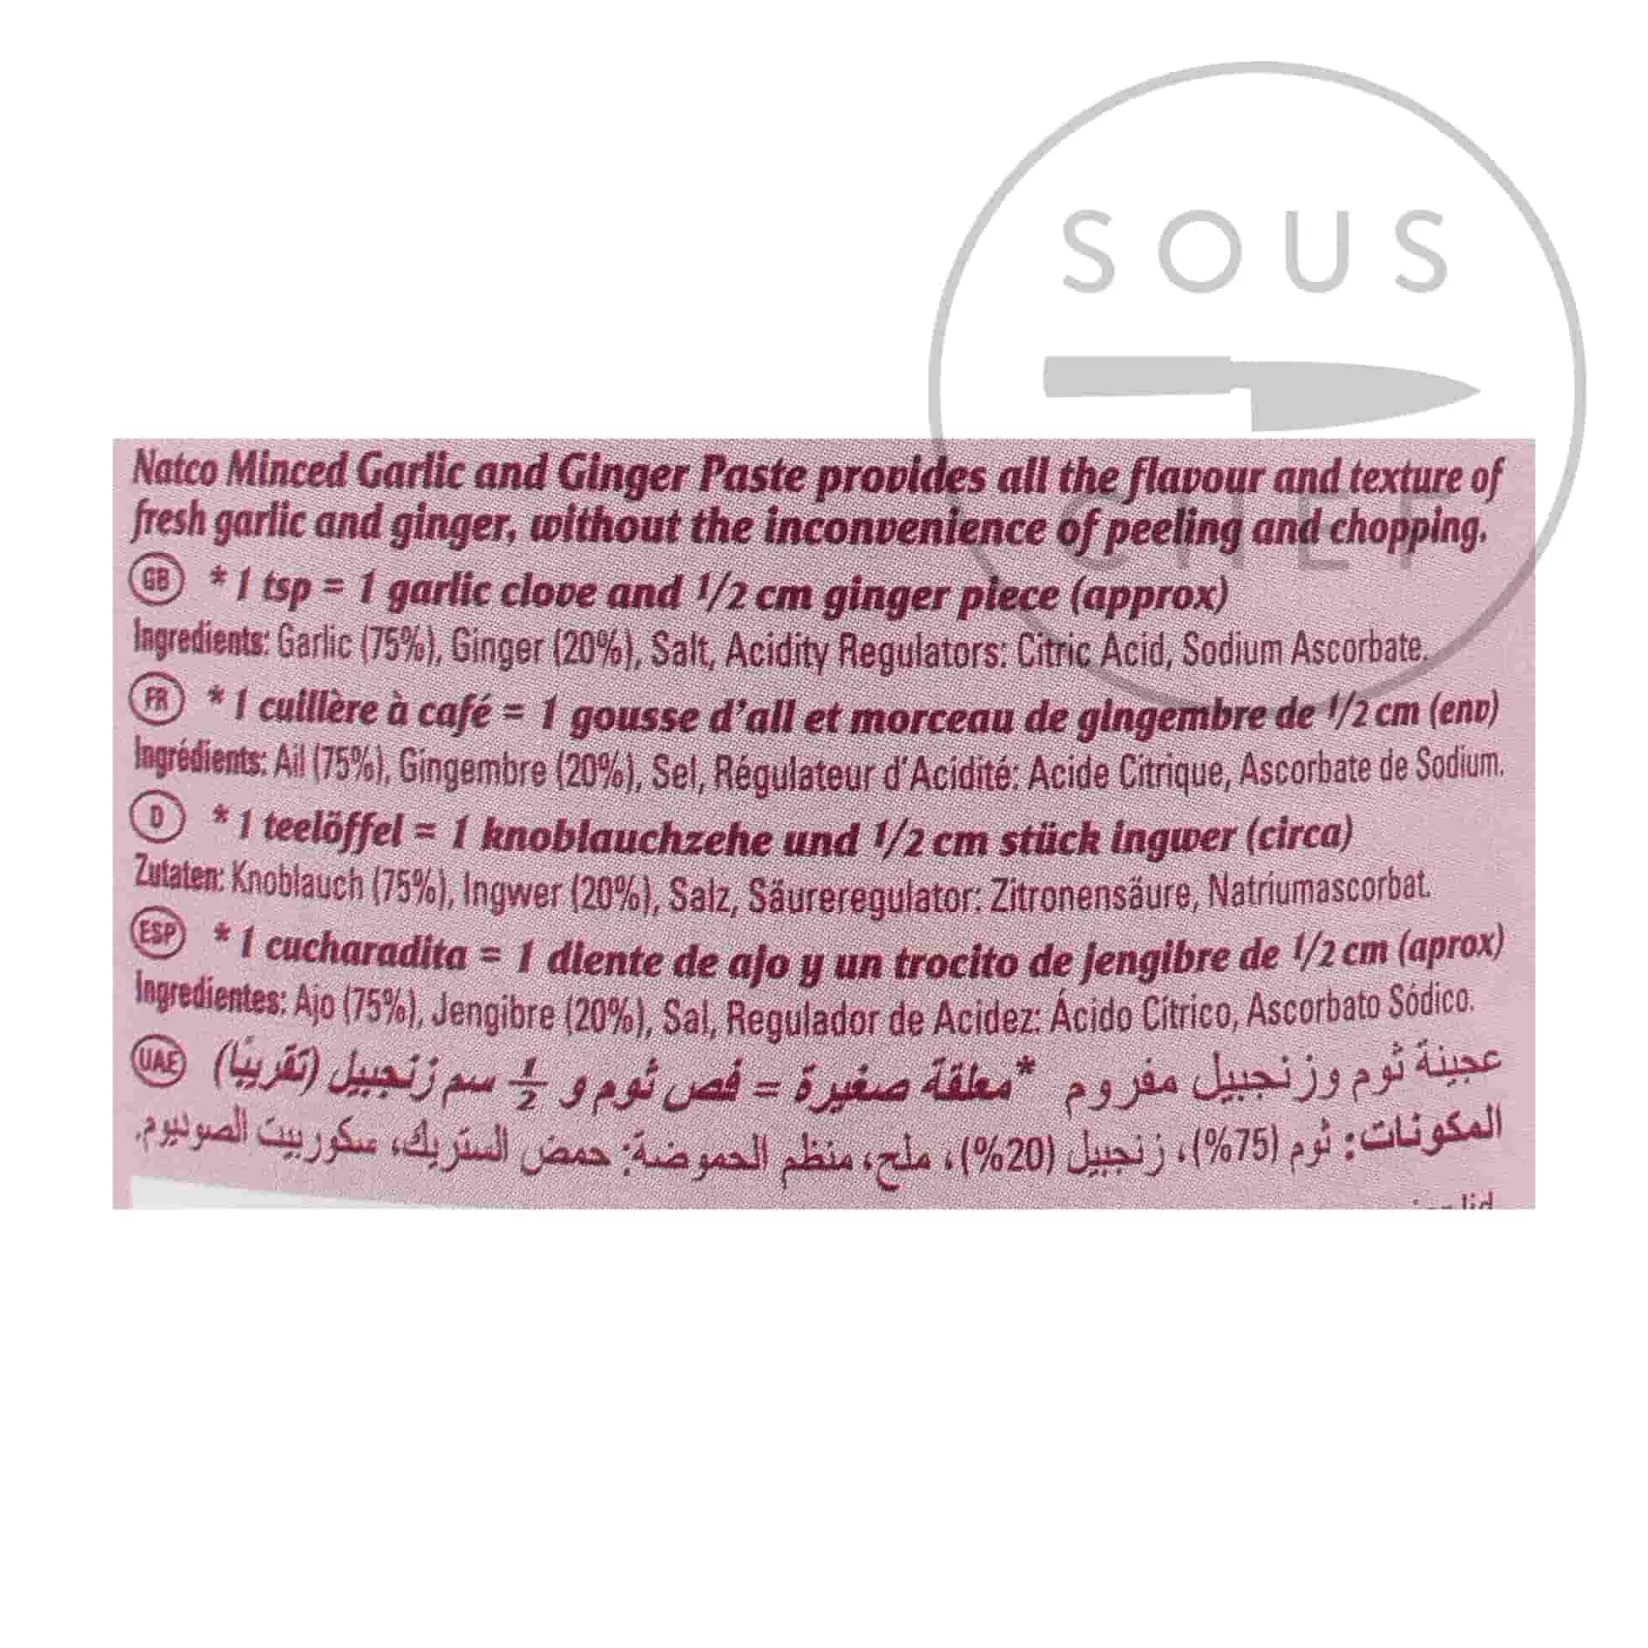 SOUS
CHEF
Natco Minced Garlic and Ginger Paste provides all the flavour and texture of
fresh garlic and ginger, without the inconvenience of peeling and chopping.
GB * 1 tsp = 1 garlic clove and 1/2 cm ginger piece (approx)
Ingredients: Garlic (75%), Ginger (20%), Salt, Acidity Regulators: Citric Acid, Sodium Ascorbate.
FR * 1 cuillère à café = 1 gousse d'ail et morceau de gingembre de 1/2 cm (env)
Ingrédients: Ail (75%), Gingembre (20%), Sel, Régulateur d'Acidité: Acide Citrique, Ascorbate de Sodium.
D * 1 teelöffel = 1 knoblauchzehe und 1/2 cm stück ingwer (circa)
Zutaten: Knoblauch (75%), Ingwer (20%), Salz, Säureregulator: Zitronensäure, Natriumascorbat.
ESP * 1 cucharadita = 1 diente de ajo y un trocito de jengibre de 1/2 cm (aprox)
Ingredientes: Ajo (75%), Jengibre (20%), Sal, Regulador de Acidez: Ácido Cítrico, Ascorbato Sódico.
UAE عجينة ثوم وزنجبيل مفروم *معلقة صغيرة = فص ثوم و ½ سم زنجبيل (تقريبًا)
المكونات: ثوم (75%)، زنجبيل (20%)، ملح، منظم الحموضة: حمض الستريك، سكوربيت الصوديوم.
lid